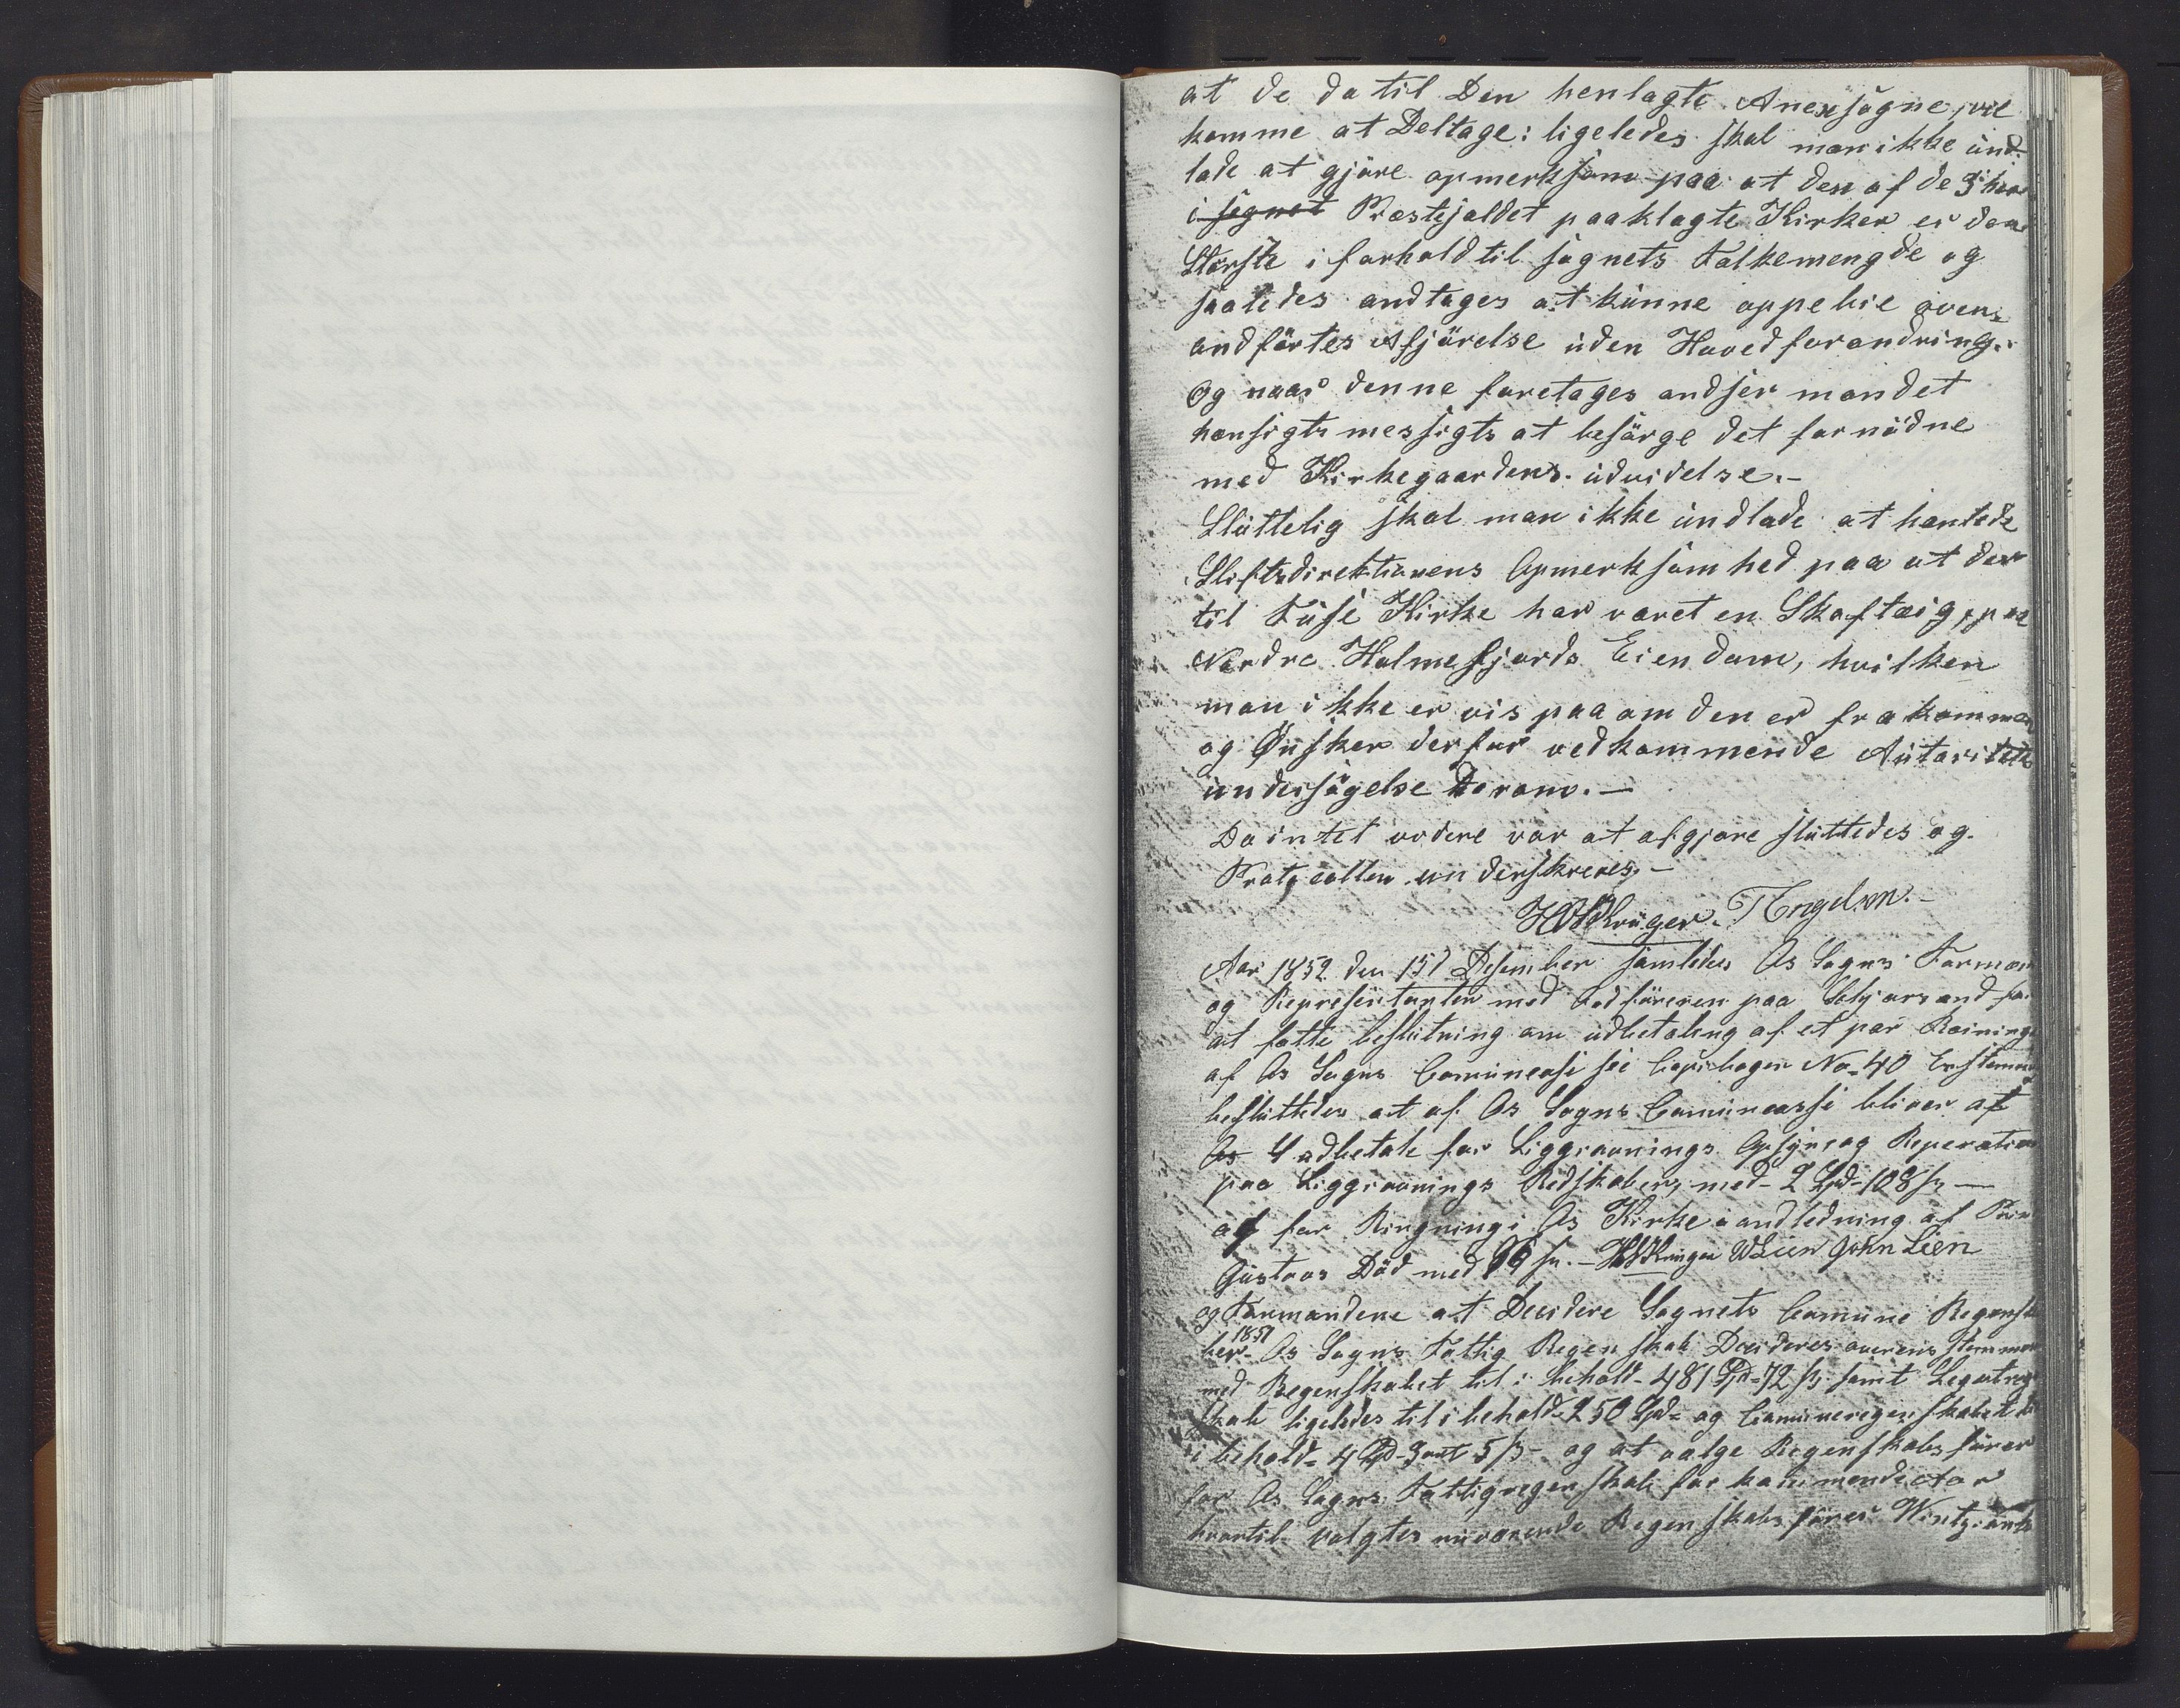 at de da til Den henlagte Anexsogne, vil
komme at Deltage: ligeledes skal man ikke und¬
lade at gjöre opmerksom paa at den af de 3 her
i sognet Præstejaldet paaklagte Kirker er den
Störste i forhold til sognets Folkemengde og
saaledes andtages at kunne oppebie oven¬
andförtes Afjörelse uden Hovedforandring.
Og naar denne foretages andser man det
hensigts messigts at besörge det fornödne
med Kirkegaardens udvidelse.-
Sluttelig skal man ikke undlade at henlede
Stiftsdirektionens Opmerksomhed paa at der
til Fuse Kirke har været en Skaftæig, paa
Nordre Holmefjords Eiendom, hvilken
man ikke er vis paa om den er frakommen
og Ønsker derfor vedkommende Autoritets
undersögelse Derom.-
Da intet videre var at afgjøre sluttedes og
Protocollen underskreves.-
HDKrüger. TEngelsen.-
Aar 1852 den 15d Desember samledes Os Sogns Formænd
og Representanter med Ordföreren paa Solgjarand for
at fatte beslutning om udbetaling af et par Reininger
af Os Sogns Comuneassi see Copiebogen No-40 Enstemmig
besluttedes at af Os Sogns Comuncassi bliver at
Os udbetale for Liggravnings Opsyn og Reperation
paa Liggravnings Redskaber, med 2 Spd-108 s -
og for Ringning i Os Kirke i andledning af Prin
Gustavs Död med 96 s.- HDKrüger WLien John Lien
og Formandene at Decidere Sognets Comune Regnska
ber 1851 Os Sogns Fattig Regenskab Decideres overens stemmen
med Regenskabet til i behold- 481 Spd-72 s samt Legatreg
skab ligeledes til i behold- 250 Spd- og Comuneregenskabet til
i behold- 4 Spd- 3 ort 5 s - og at valge Regenskabsfører
for Os Sogns Fattigregenskab for kommende Aar
hvortil valgtes nuværende Regenskabsförer